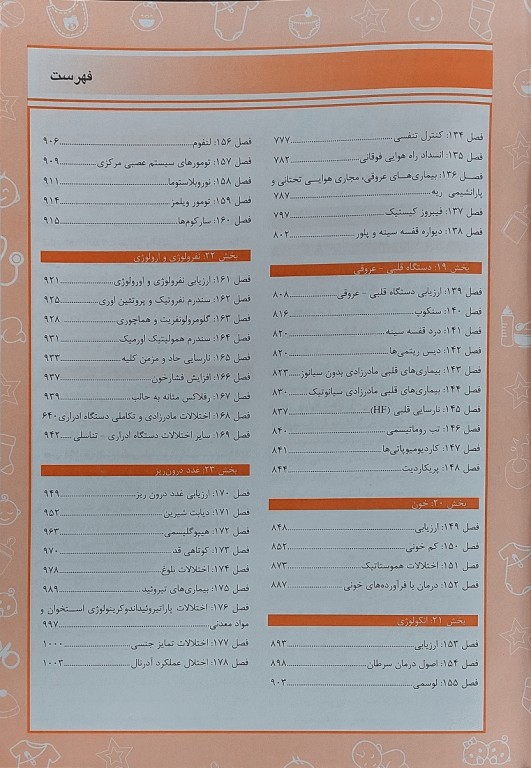 فهرست
فصل ۱۳۴: کنترل تنفسی ..........۷۷۷
فصل ۱۳۵: انسداد راه هوایی فوقانی ..........۷۸۲
فصل ۱۳۶: بیماری‌های عروقی، مجاری هوایی تحتانی و
پارانشیمی ریه ..........۷۸۷
فصل ۱۳۷: فیبروز کیستیک ..........۷۹۷
فصل ۱۳۸: دیواره قفسه سینه و پلور ..........۸۰۲
بخش ۱۹: دستگاه قلبی - عروقی
فصل ۱۳۹: ارزیابی دستگاه قلبی - عروقی ..........۸۰۸
فصل ۱۴۰: سنکوپ ..........۸۱۶
فصل ۱۴۱: درد قفسه سینه ..........۸۲۰
فصل ۱۴۲: دیس ریتمی‌ها ..........۸۲۰
فصل ۱۴۳: بیماری‌های قلبی مادرزادی بدون سیانوز ..........۸۲۳
فصل ۱۴۴: بیماری‌های قلبی مادرزادی سیانوتیک ..........۸۳۰
فصل ۱۴۵: نارسایی قلبی (HF) ..........۸۳۷
فصل ۱۴۶: تب روماتیسمی ..........۸۴۰
فصل ۱۴۷: کاردیومیوپاتی‌ها ..........۸۴۱
فصل ۱۴۸: پریکاردیت ..........۸۴۴
بخش ۲۰: خون
فصل ۱۴۹: ارزیابی ..........۸۴۸
فصل ۱۵۰: کم خونی ..........۸۵۲
فصل ۱۵۱: اختلالات هموستاتیک ..........۸۷۳
فصل ۱۵۲: درمان با فرآورده‌های خونی ..........۸۸۷
بخش ۲۱: انکولوژی
فصل ۱۵۳: ارزیابی ..........۸۹۳
فصل ۱۵۴: اصول درمان سرطان ..........۸۹۸
فصل ۱۵۵: لوسمی ..........۹۰۳
فصل ۱۵۶: لنفوم ..........۹۰۶
فصل ۱۵۷: تومورهای سیستم عصبی مرکزی ..........۹۰۹
فصل ۱۵۸: نوروبلاستوما ..........۹۱۱
فصل ۱۵۹: تومور ویلمز ..........۹۱۴
فصل ۱۶۰: سارکوم‌ها ..........۹۱۵
بخش ۲۲: نفرولوژی و ارولوژی
فصل ۱۶۱: ارزیابی نفرولوژی و اورولوژی ..........۹۲۱
فصل ۱۶۲: سندرم نفروتیک و پروتئین اوری ..........۹۲۵
فصل ۱۶۳: گلومرولونفریت و هماچوری ..........۹۲۸
فصل ۱۶۴: سندرم همولیتیک اورمیک ..........۹۳۱
فصل ۱۶۵: نارسایی حاد و مزمن کلیه ..........۹۳۳
فصل ۱۶۶: افزایش فشارخون ..........۹۳۷
فصل ۱۶۷: رفلاکس مثانه به حالب ..........۹۳۹
فصل ۱۶۸: اختلالات مادرزادی و تکاملی دستگاه ادراری ۶۴۰
فصل ۱۶۹: سایر اختلالات دستگاه ادراری - تناسلی ..........۹۴۲
بخش ۲۳: غدد درون‌ریز
فصل ۱۷۰: ارزیابی غدد درون ریز ..........۹۴۹
فصل ۱۷۱: دیابت شیرین ..........۹۵۲
فصل ۱۷۲: هیپوگلیسمی ..........۹۶۳
فصل ۱۷۳: کوتاهی قد ..........۹۷۰
فصل ۱۷۴: اختلالات بلوغ ..........۹۷۸
فصل ۱۷۵: بیماری‌های تیروئید ..........۹۸۹
فصل ۱۷۶: اختلالات پاراتیروئیداندوکرینولوژی استخوان و
مواد معدنی ..........۹۹۷
فصل ۱۷۷: اختلالات تمایز جنسی ..........۱۰۰۰
فصل ۱۷۸: اختلال عملکرد آدرنال ..........۱۰۰۳